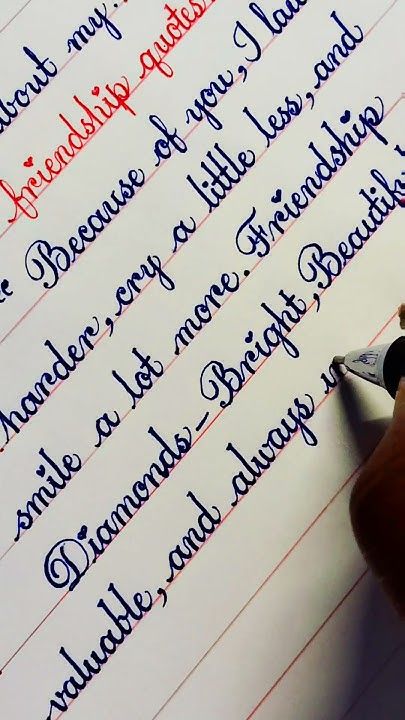 about my..
friendship quotes
" Because of you, I
harder, cry a little less, and
smile a lot more. Friendship
Diamonds - Bright, Beautiful
valuable, and always